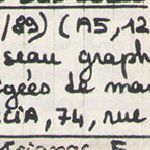 /89) (A5, 12
seau graph
igées de ma
CiA, 74, rue